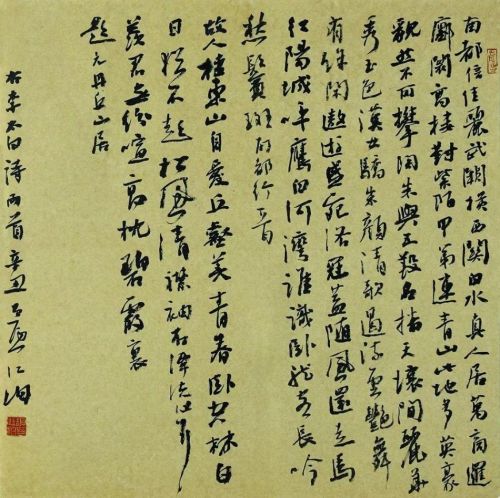 南都信佳麗武闕橫西関白水真人居萬商邏
鄽闤高樓對紫陌甲第連青山此地多英豪
邈然不可攀陶朱與五羖名播天壤間麗華
秀玉色漢女驕朱顏清歌遏流雲艷舞
有餘閑遨遊盛宛洛冠盖隨風還走馬
紅陽城呼鷹白河灣誰識卧龍客長吟
愁鬢斑南都行一首
故人棲東山自愛丘壑美青春卧空林白
日猶不起松風清襟袖石潭洗心耳
羨君無紛喧高枕碧霞裏
題元丹丘山居
右李太白詩兩首辛丑